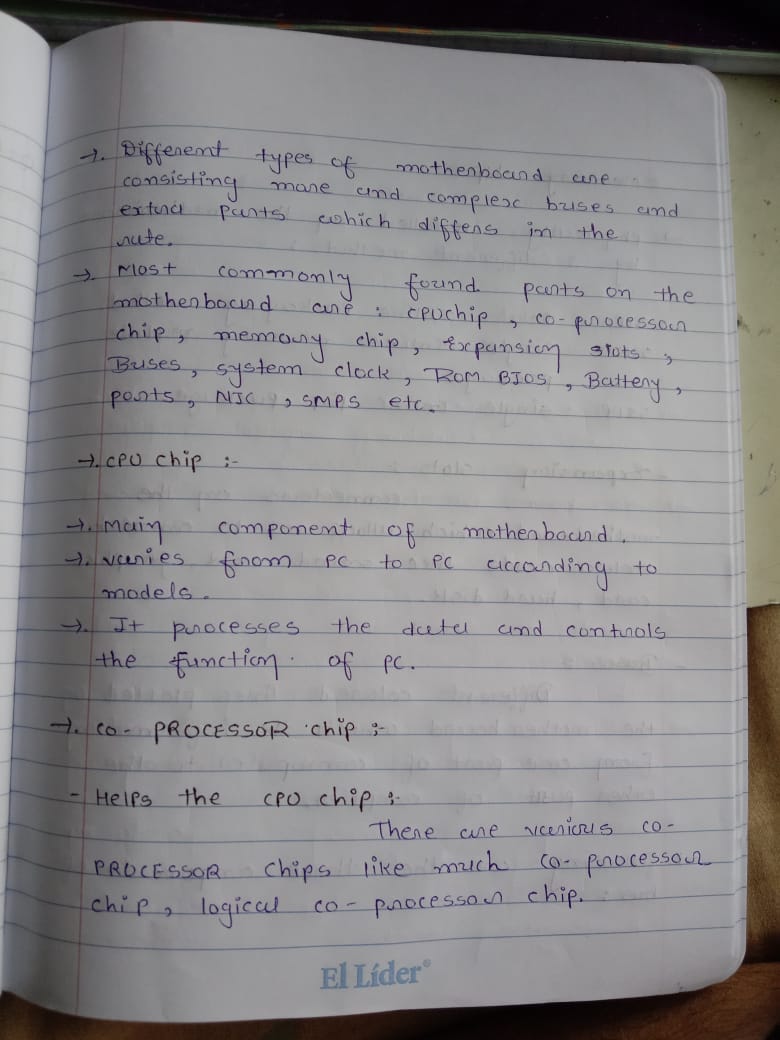 →. Different types of motherboard are
consisting more and complex buses and
extra parts which differs in the
rate.
→ Most commonly found parts on the
motherboard are : cpuchip, co-processor
chip, memory chip, Expansion slots,
Buses, system clock, ROM BIOS, Battery,
ports, NIC, SMPS etc.
→. CPU chip :-
→. Main component of motherboard.
→. varies from PC to PC according to
models.
→. It processes the data and controls
the function of PC.
→. CO- PROCESSOR chip :-
- Helps the CPU chip :-
There are various co-
PROCESSOR chips like much co-processor
chip, logical co-processor chip.
El Líder®